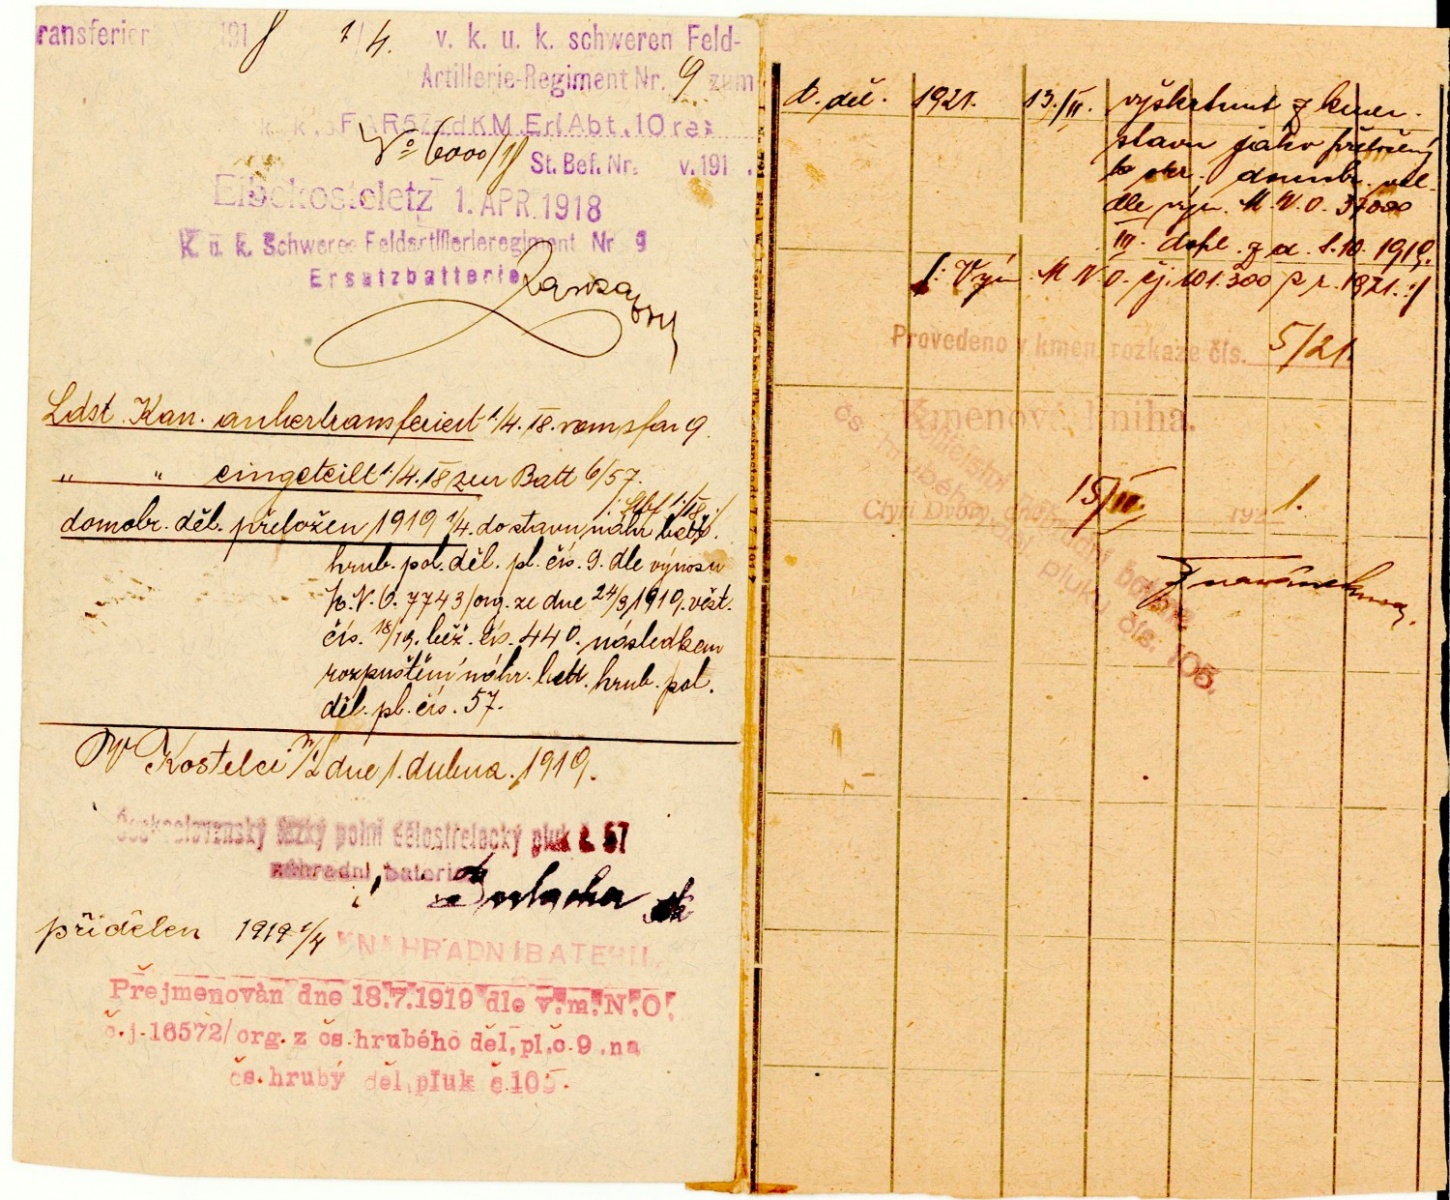 ransferier 1918 1/4. v. k. u. k. schweren Feld-
Artillerie-Regiment Nr. 9 zum
Erf Abt. 10
No 6000/18 St. Bef. Nr. v. 191 .
Elbekosteletz 1. APR. 1918
K. u. k. Schweres Feldartillerieregiment Nr 9
Ersatzbatterie
Ldst. Kan. anhertransferiert 1/4. 18. vom sfar 9.
" " eingeteilt 1/4. 18 zur Batt 6/57.
domobr. děl. přeložen 1919 1/4. do stavu náhr batt.
hrub. pol. děl. pl. čís. 9. dle výnosu
N. O. 7743/org. ze dne 24/3 1919. věst.
čís. 18/19. běž. čís. 440. následkem
rozpuštění náhr. batt. hrub. pol.
děl. pl. čís. 57.
V Kostelci n/L dne 1. dubna. 1919.
Československý těžký polní dělostřelecký pluk č. 57
náhradní baterie
přidělen 1919 1/4 K NÁHRADNÍ BATERII.
Přejmenován dne 18.7.1919 dle v.m.N.O.
č.j.16572/org. z čs.hrubého děl.pl.č.9.na
čs.hrubý děl.pluk č.105.
d. děl. 1921. 13./II. vyškrtnut z kmen.
stavu jako přeložený
k okr. domobr. vel.
dle výn. M.N.O. 37000
III. dopl. z d. 1.10. 1919.
/: Výn. M.N.O. čj. 101.300 z r. 1921. :/
Provedeno v kmen. rozkaze čís. 5/21.
Kmenová kniha.
velitelství náhradní baterie
čs. hrubého děl. pluku čís. 105.
Čtyři Dvory, dne 15/III. 1921.